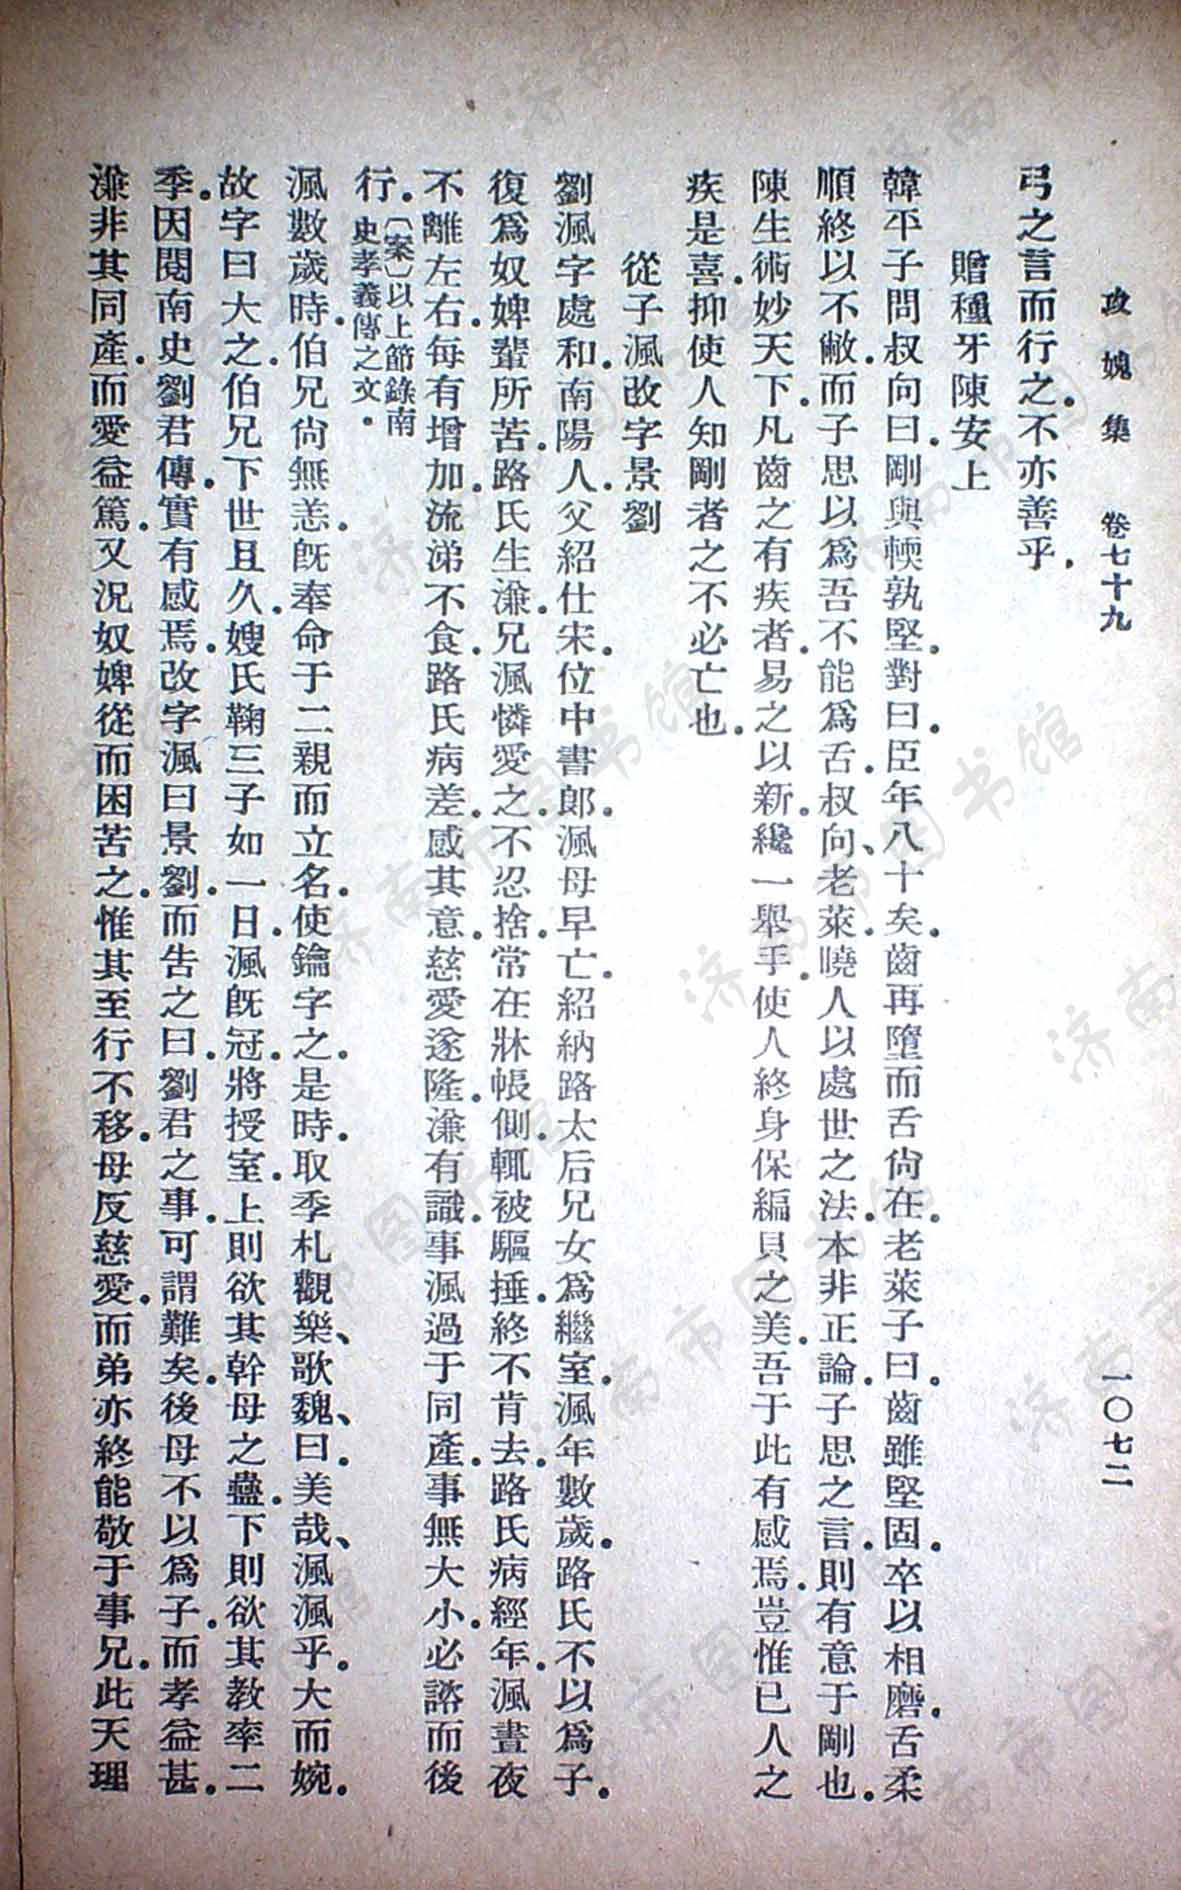 攻媿集　卷七十九　一〇七二
弓之言而行之。不亦善乎。
贈種牙陳安上
韓平子問叔向曰。剛與輭孰堅。對曰。臣年八十矣。齒再墮而舌尙在。老萊子曰。齒雖堅固。卒以相磨。舌柔
順終以不敝。而子思以爲吾不能爲舌。叔向、老萊。曉人以處世之法。本非正論。子思之言。則有意于剛也。
陳生術妙天下。凡齒之有疾者。易之以新。纔一舉手。使人終身保編貝之美。吾于此有感焉。豈惟已人之
疾是喜。抑使人知剛者之不必亡也。
從子渢改字景劉
劉渢字處和。南陽人。父紹仕宋。位中書郎。渢母早亡。紹納路太后兄女爲繼室。渢年數歲。路氏不以爲子。
復爲奴婢輩所苦。路氏生溓。兄渢憐愛之。不忍捨。常在牀帳側。輒被驅捶。終不肯去。路氏病經年。渢晝夜
不離左右。每有增加。流涕不食。路氏病差。感其意。慈愛遂隆。溓有識。事渢過于同產。事無大小。必諮而後
行。〔案〕以上節錄南史孝義傳之文。
渢數歲時。伯兄尙無恙。旣奉命于二親而立名。使鑰字之。是時。取季札觀樂、歌魏、曰。美哉、渢渢乎。大而婉。
故字曰大之。伯兄下世且久。嫂氏鞠三子如一日。渢旣冠。將授室。上則欲其幹母之蠱。下則欲其教率二
季。因閱南史劉君傳。實有感焉。改字渢曰景劉。而告之曰。劉君之事。可謂難矣。後母不以爲子。而孝益甚。
溓非其同產。而愛益篤。又況奴婢從而困苦之。惟其至行不移。母反慈愛。而弟亦終能敬于事兄。此天理